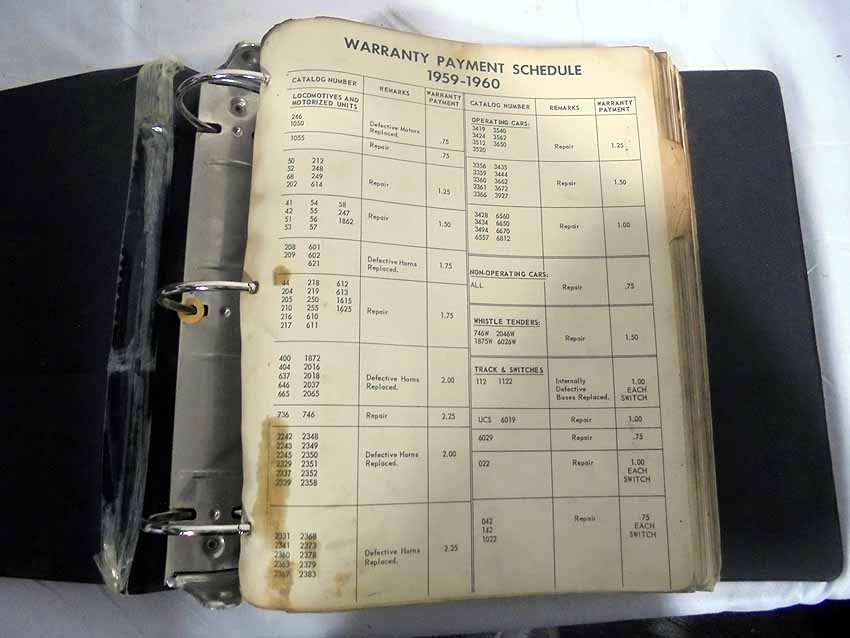 WARRANTY PAYMENT SCHEDULE
1959-1960
CATALOG NUMBER REMARKS WARRANTY PAYMENT
LOCOMOTIVES AND
MOTORIZED UNITS
246
1050 Defective Motors
Replaced. .75
1055 Repair .75
50 212
52 248
68 249 Repair
202 614 1.25
41 54 58
42 55 247
51 56 1862 Repair
53 57 1.50
208 601
209 602 Defective Horns
621 Replaced. 1.75
44 218 612
204 219 613
205 250 1615
210 255 1625 Repair 1.75
216 610
217 611
400 1872
404 2016
637 2018 Defective Horns 2.00
646 2037 Replaced.
665 2065
736 746 Repair 2.25
2242 2348
2243 2349
2245 2350 Defective Horns 2.00
2329 2351 Replaced.
2337 2352
2339 2358
2331 2368
2341 2373
2360 2378 Defective Horns 2.25
2363 2379 Replaced.
2367 2383
CATALOG NUMBER REMARKS WARRANTY
PAYMENT
OPERATING CARS:
3419 3540
3424 3562
3512 3650 Repair 1.25
3520
3356 3435
3359 3444
3360 3662 Repair 1.50
3361 3672
3366 3927
3428 6560
3434 6650 Repair 1.00
3494 6670
6557 6812
NON-OPERATING CARS:
ALL Repair .75
WHISTLE TENDERS:
746W 2046W Repair 1.50
1875W 6026W
TRACK & SWITCHES
112 1122 Internally 1.00
Defective EACH
Boxes Replaced. SWITCH
UCS 6019 Repair 1.00
6029 Repair .75
022 Repair 1.00
EACH
SWITCH
042 Repair .75
142 EACH
1022 SWITCH